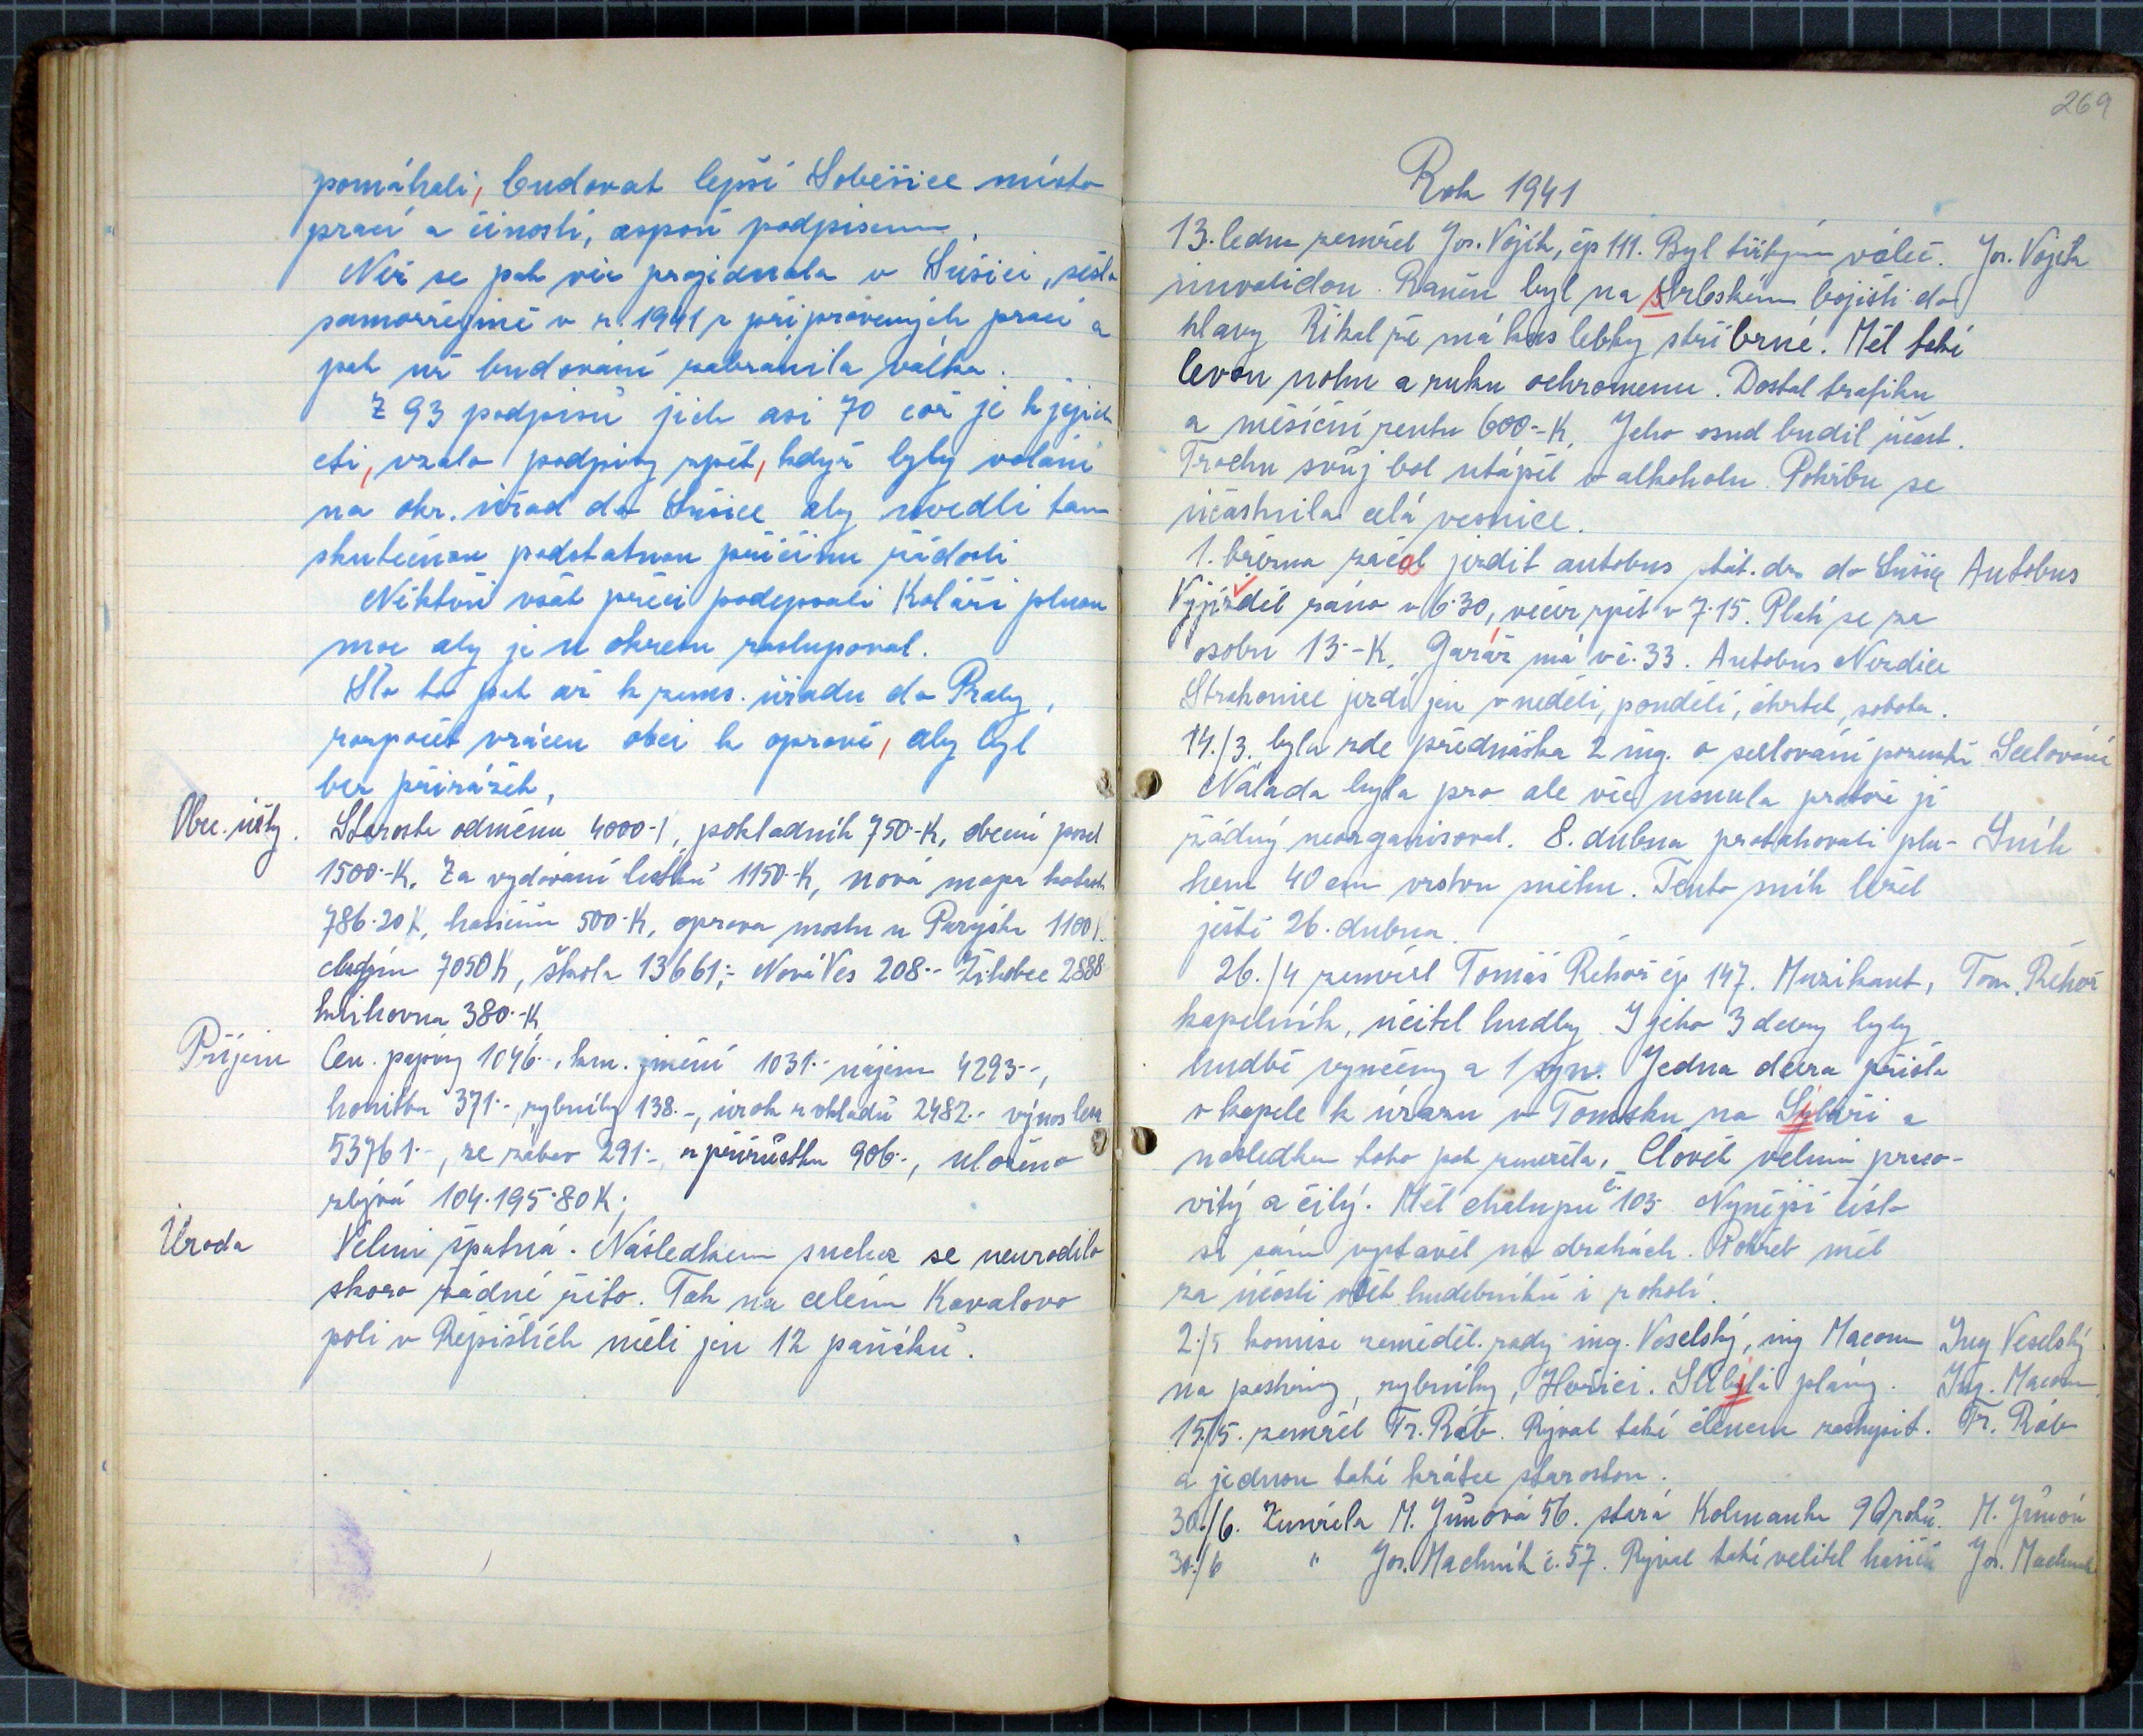 pomáhali, budovat lepší Soběšice místo
prací a činností, aspoň podpisem.
Než se pak věc projednala v Sušici, sešlo
samozřejmě v r. 1941 z připravených prací a
pak už budování zabránila válka.
Z 93 podpisů jich asi 70 což je k jejich
cti, vzalo podpisy zpět, když byly voláni
na okr. úřad do Sušice aby uvedli tam
skutečnou podstatnou příčinu žádosti
Někteří však přeci podepsali Koláři plnou
moc aby je u okresu zastupoval.
Šlo to pak až k zems. úřadu do Prahy,
rozpočet vrácen obci k opravě, aby byl
bez přirážek,
Obec. účty.
Starosta odměnu 4000-, pokladník 750-K, obecní posel
1500-K. Za vydávání lístků 1150-K, nová mapa katastr
786·20K, hasičům 500-K, oprava mostu u Parýska 1100K.
chudým 7050K, škola 13661,- Nová Ves 208·- Žihobce 2888
knihovna 380-K
Příjem
Cen. papíry 1046·-, km. jmění 1031·- nájem 4293·-,
honitba 371·-, rybníky 138.-, úrok z vkladů 2482.- výnos lesa
53761·-, ze zábav 291·-, z přírůstku 906·-, uloženo
zbývá 104.195·80K;
Úroda
Velmi špatná. Následkem sucha se neurodilo
skoro žádné žito. Tak na celém Kovalovo
poli v Řepištích měli jen 12 panáků.
269
Rok 1941
13. ledna zemřel Jos. Voják, čp 111. Byl těžkým váleč. Jos. Voják
invalidou. Raněn byl na srbském bojišti do
hlavy Říkal že má kus lebky stříbrné. Měl také
levou nohu a ruku ochromenu. Dostal trafiku
a měsíční rentu 600-K. Jeho osud budil účast.
Trochu svůj bol utápěl v alkoholu. Pohřbu se
účastnila celá vesnice.
1. března začal jezdit autobus stát. dr. do Sušice Autobus
Vyjížděl ráno v 6·30, večer zpět v 7·15. Platí se za
osobu 13·-K. Garáž má v č. 33. Autobus Nezdice
Strakonice jezdí jen v neděli, pondělí, čtvrtek, sobota.
14./3. byla zde přednáška 2 ing. o scelování pozemků Scelování
Nálada byla pro ale věc usnula protože ji
žádný neorganisoval. 8. dubna protahovali plu- Sníh
hem 40 cm vrstvu sněhu. Tento sníh ležel
ještě 26. dubna.
26./4 zemřel Tomáš Řehoř čp 147. Muzikant, Tom. Řehoř
kapelník, učitel hudby. I jeho 3 dcery byly
hudbě vyučeny a 1 syn. Jedna dcera přišla
v kapele k úrazu v Tomsku na Sibiři a
následkem toho pak zemřela. Člověk velmi praco-
vitý a čilý. Měl chalupu č. 103 Nynější číslo
si sám vystavěl na drahách. Pohřeb měl
za účasti všech hudebníků i z okolí.
2./5 komise zeměděl. rady ing. Veselský, ing Macoun Ing Veselský
na pastviny, rybníky, Hořici. Slíbili plány. Ing. Macoun
15./5. zemřel Fr. Ráb. Býval také členem zastupit. Fr. Ráb
a jednou také krátce starostou.
30./6. Zemřela M. Jůnová 56. stará Kolmanka 90 roků. M. Jůnová
30./6 " Jos. Machník č. 57. Býval také velitel hasičů Jos. Machník